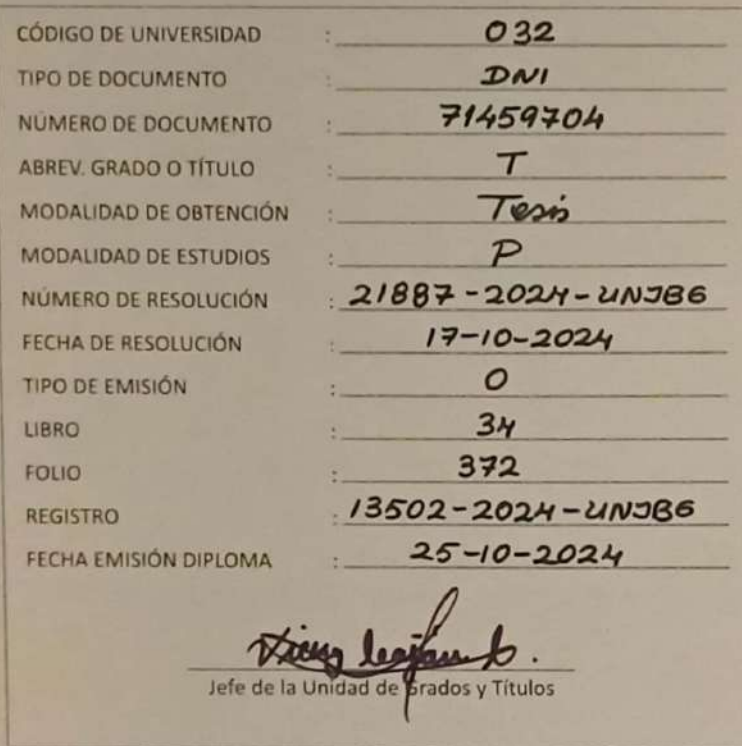 CÓDIGO DE UNIVERSIDAD : 032
TIPO DE DOCUMENTO : DNI
NÚMERO DE DOCUMENTO : 71459704
ABREV. GRADO O TÍTULO : T
MODALIDAD DE OBTENCIÓN : Tesis
MODALIDAD DE ESTUDIOS : P
NÚMERO DE RESOLUCIÓN : 21887-2024-UNJBG
FECHA DE RESOLUCIÓN : 17-10-2024
TIPO DE EMISIÓN : O
LIBRO : 34
FOLIO : 372
REGISTRO : 13502-2024-UNJBG
FECHA EMISIÓN DIPLOMA : 25-10-2024
Jefe de la Unidad de Grados y Títulos